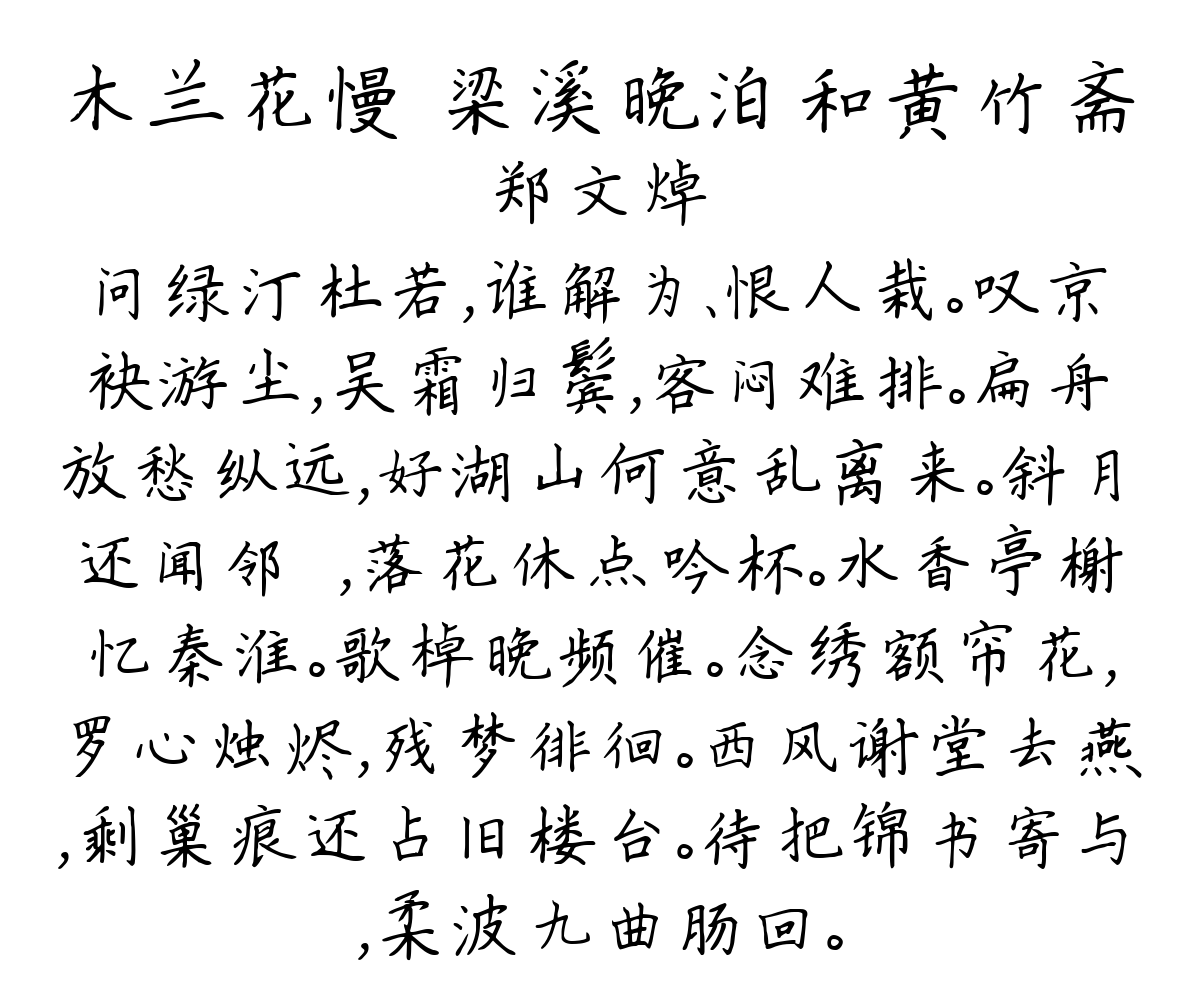 木兰花慢 梁溪晚泊 和黄竹斋
郑文焯
问绿汀杜若,谁解为、恨人栽。叹京
袂游尘,吴霜归鬓,客闷难排。扁舟
放愁纵远,好湖山何意乱离来。斜月
还闻邻 ,落花休点吟杯。水香亭榭
忆秦淮。歌棹晚频催。念绣额帘花,
罗心烛烬,残梦徘徊。西风谢堂去燕
,剩巢痕还占旧楼台。待把锦书寄与
,柔波九曲肠回。